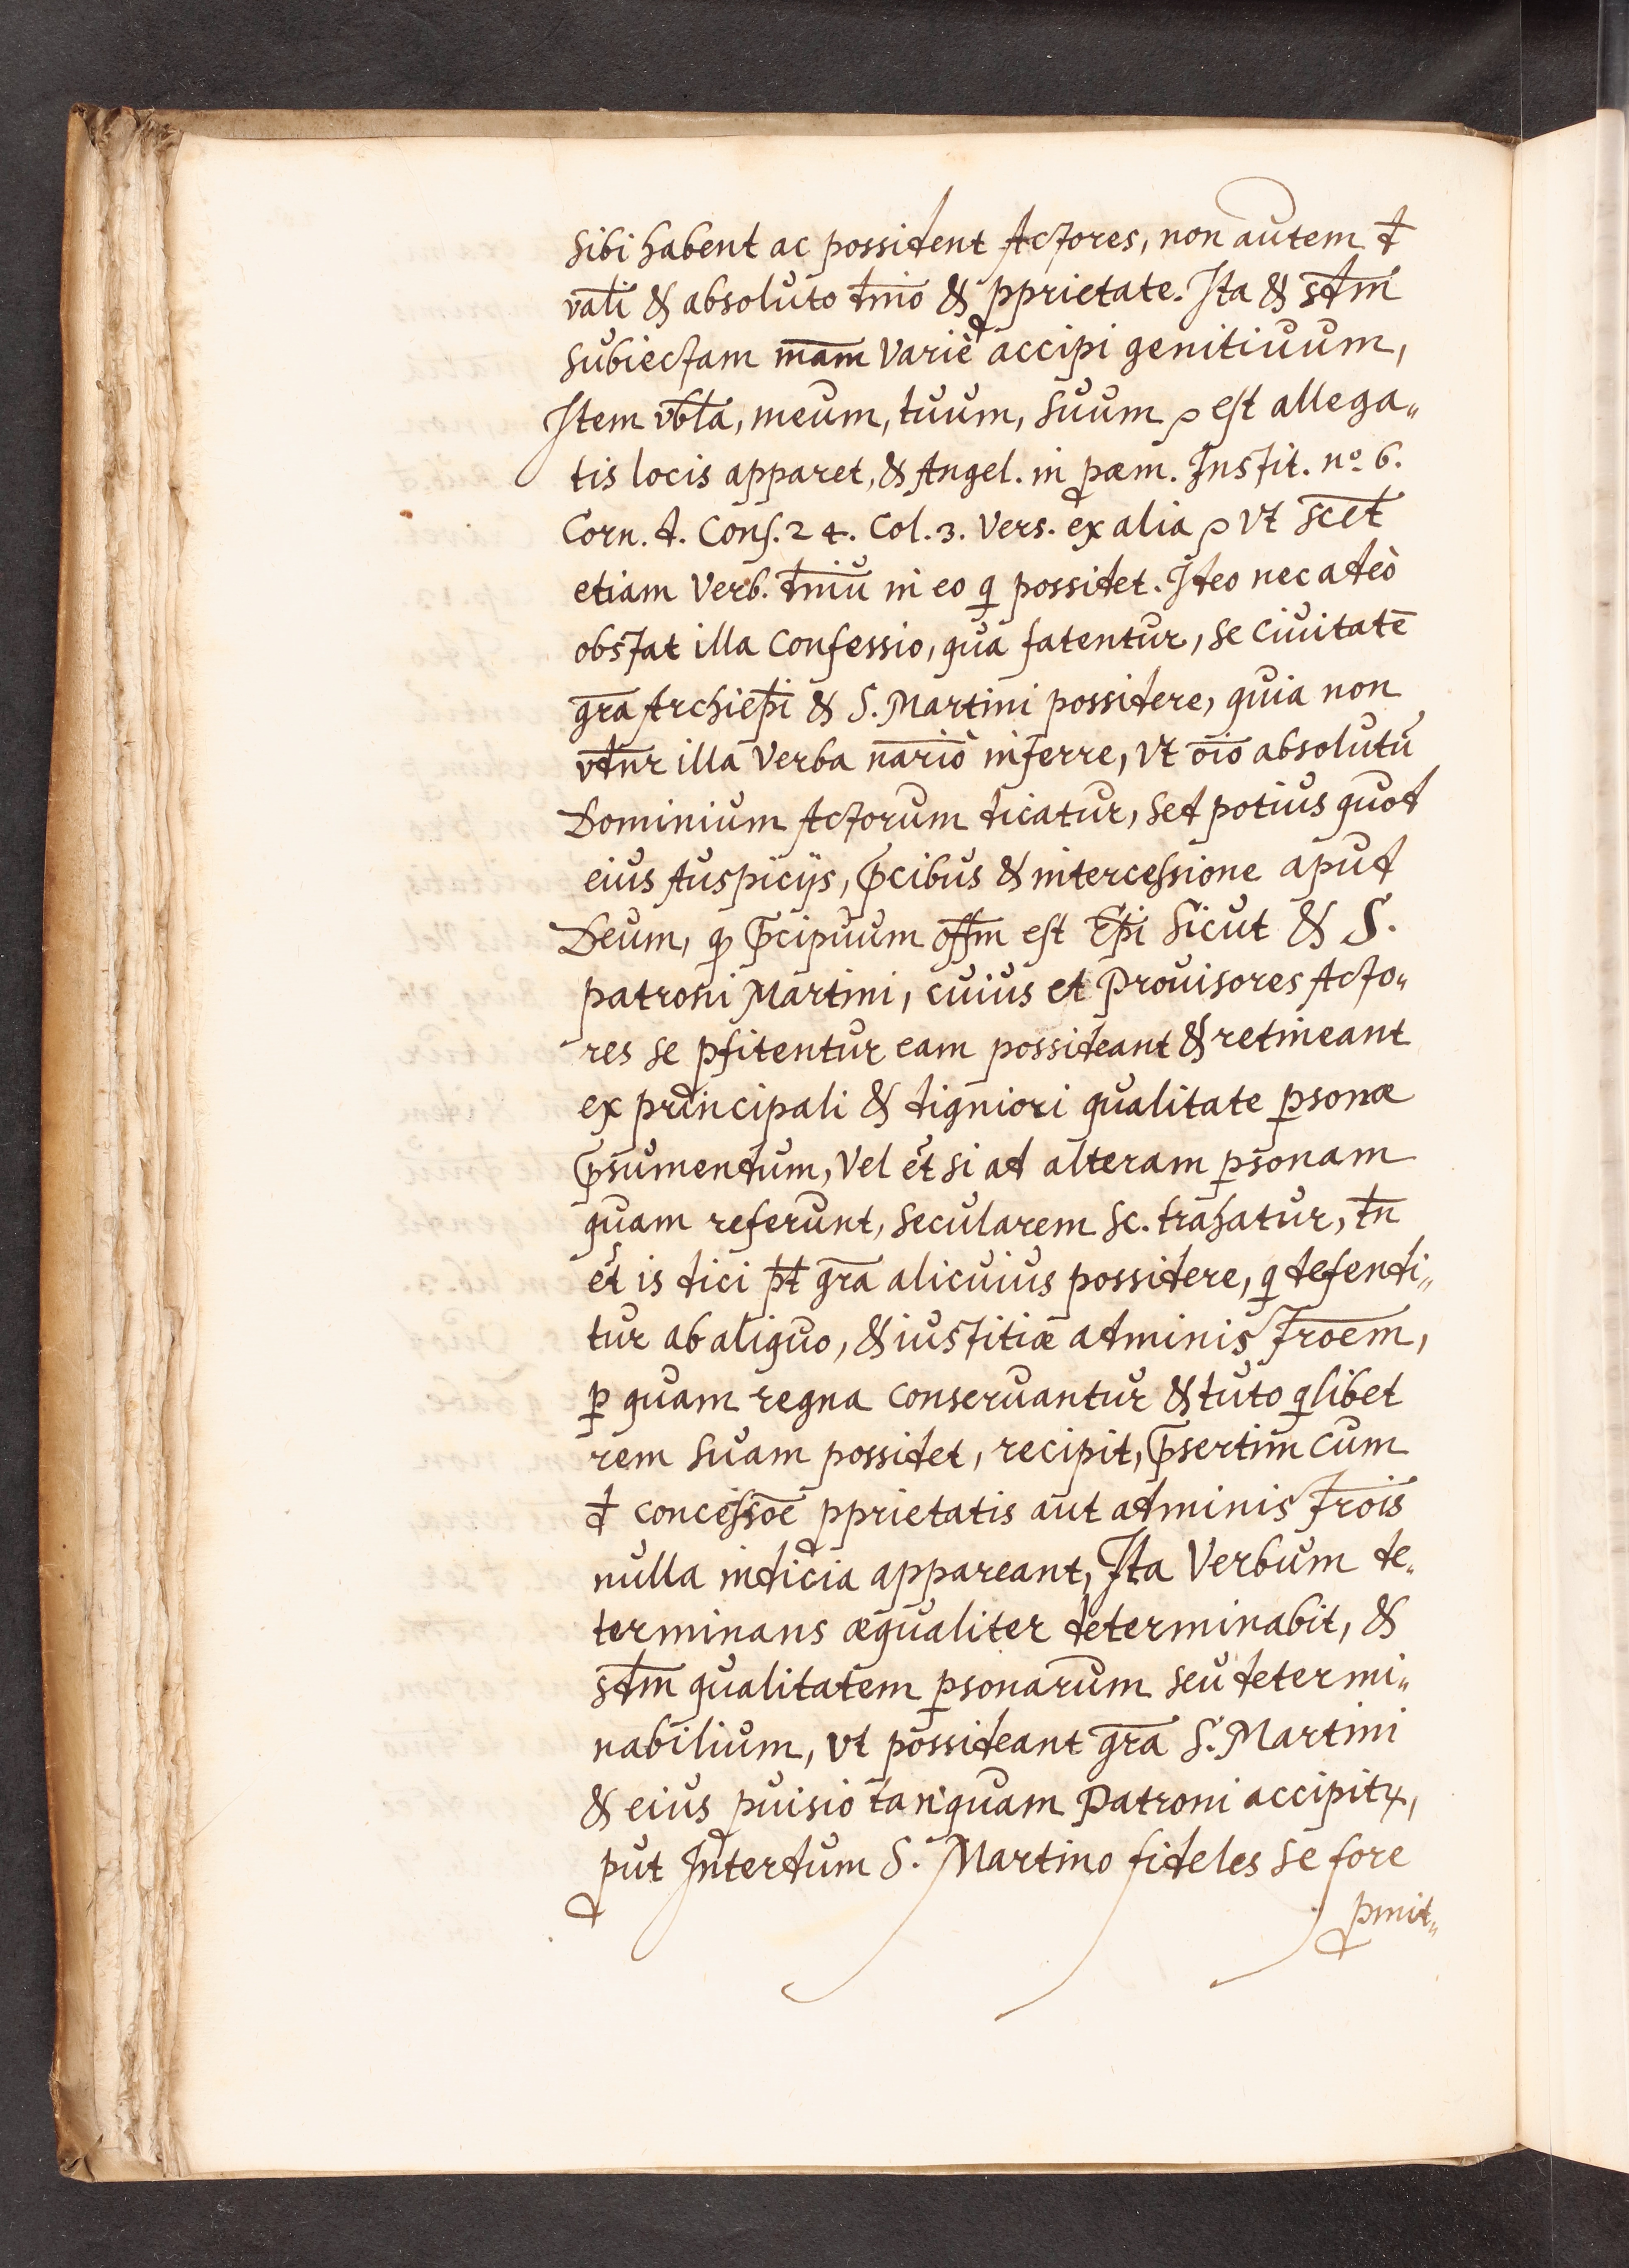 sibi habent ac possident Actores, non autem đ
vāli & absoluto dn̄io & ꝓprietate. Ita & sdm̄
subiectam mām variè accipi genitiuum,
Item vb̄la, meum, tuum, suum ꝓ est allega„
tis locis apparet, & Angel. in ꝓœm. Instit. nº 6.
Corn. d. Cons. 24. Col. 3. Vers. ex alia ꝓ vt sc̄et
etiam Verb. dn̄iū in eo q̱ possidet. Ideo nec adeò
obstat illa Confessio, qua fatentur, se Ciuitatē
gr̄a Archiep̄i & S. Martini possidere, quia non
vdn̄r illa Verba nāriò inferre, vt oīo absolutū
Dominium Actorum dicatur, sed potius quod
eius Auspicijs, p̄cibus & intercessione apud
Deum, qđ p̄cipuum off̄m est Ep̄i sicut & S.
patroni Martini, cuius et Prouisores Acto„
res se ꝓfitentur eam possideant & retineant
ex principali & digniori qualitate ꝑsonæ
p̄sumendum, Vel et̄ si ad alteram ꝑsonam
quam referunt, secularem sc. trahatur, tn̄
et̄ is dici pt̄ gr̄a alicuius possidere, q̱ defendi„
tur ab aliquo, & iustitiæ administrōem,
ꝑ quam regna conseruantur & tuto q̱libet
rem suam possidet, recipit, p̄sertim cum
đ concessōe ꝓprietatis aut administrōis
nulla indicia appareant, Ita Verbum de„
terminans æqualiter determinabit, &
sdm̄ qualitatem ꝑsonarum seu determi„
nabilium, vt possideant gr̄a S. Martini
& eius ꝓuisio tanquam Patroni accipitꝛ,
ꝓut Interdum S. Martino fideles se fore
ꝓmit„